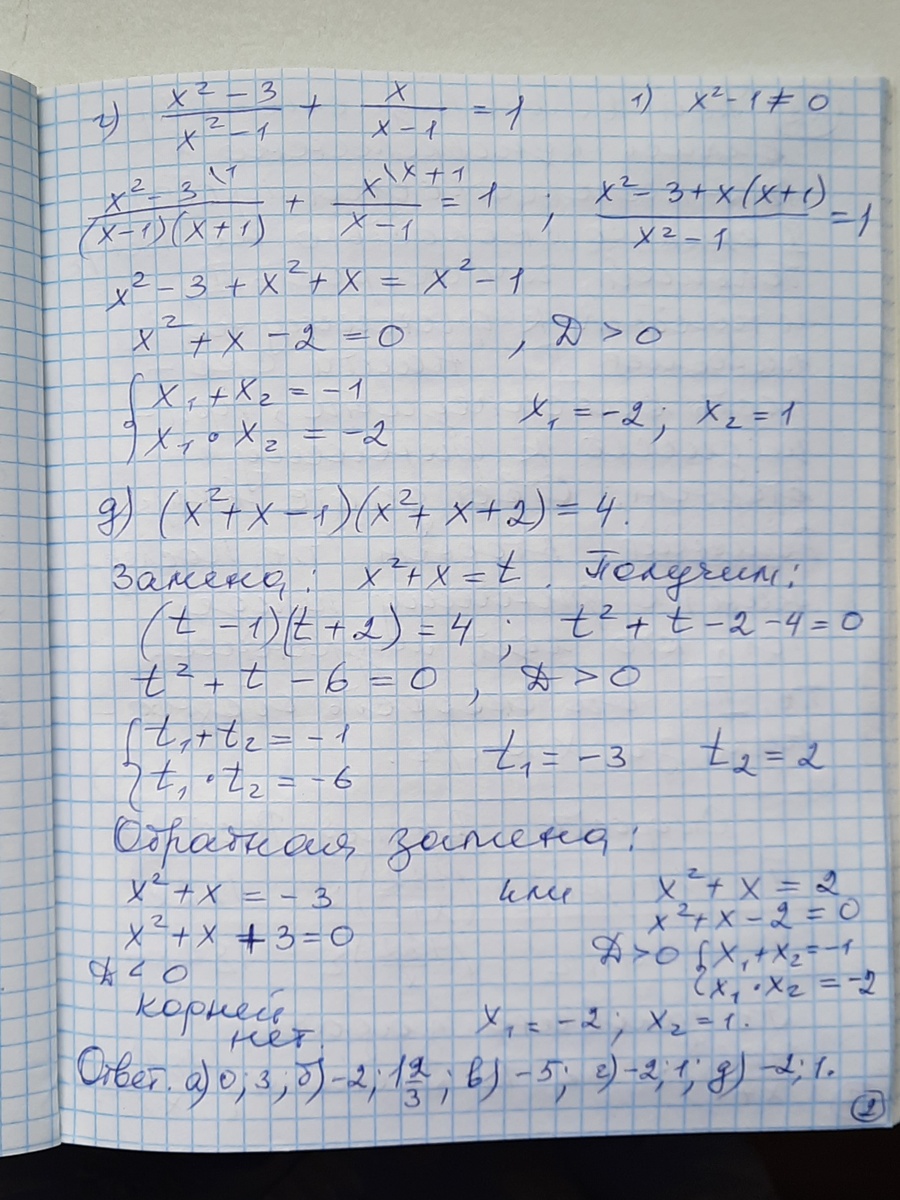 г) (x² - 3)/(x² - 1) + x/(x - 1) = 1     1) x² - 1 ≠ 0
(x² - 3 \1)/((x-1)(x+1)) + (x \x+1)/(x-1) = 1 ; (x² - 3 + x(x+1))/(x² - 1) = 1
x² - 3 + x² + x = x² - 1
x² + x - 2 = 0 , D > 0
{ x₁ + x₂ = -1
{ x₁ · x₂ = -2     x₁ = -2; x₂ = 1
д) (x² + x - 1)(x² + x + 2) = 4.
Замена: x² + x = t. Получим:
(t - 1)(t + 2) = 4 ; t² + t - 2 - 4 = 0
t² + t - 6 = 0 , D > 0
{ t₁ + t₂ = -1
{ t₁ · t₂ = -6     t₁ = -3   t₂ = 2
Обратная замена:
x² + x = -3     или     x² + x = 2
x² + x + 3 = 0     x² + x - 2 = 0
D < 0     D > 0 { x₁ + x₂ = -1
{ x₁ · x₂ = -2
корней
нет.     x₁ = -2; x₂ = 1.
Ответ. а) 0; 3; б) -2; 1 2/3; в) -5; г) -2; 1; д) -2; 1.
2